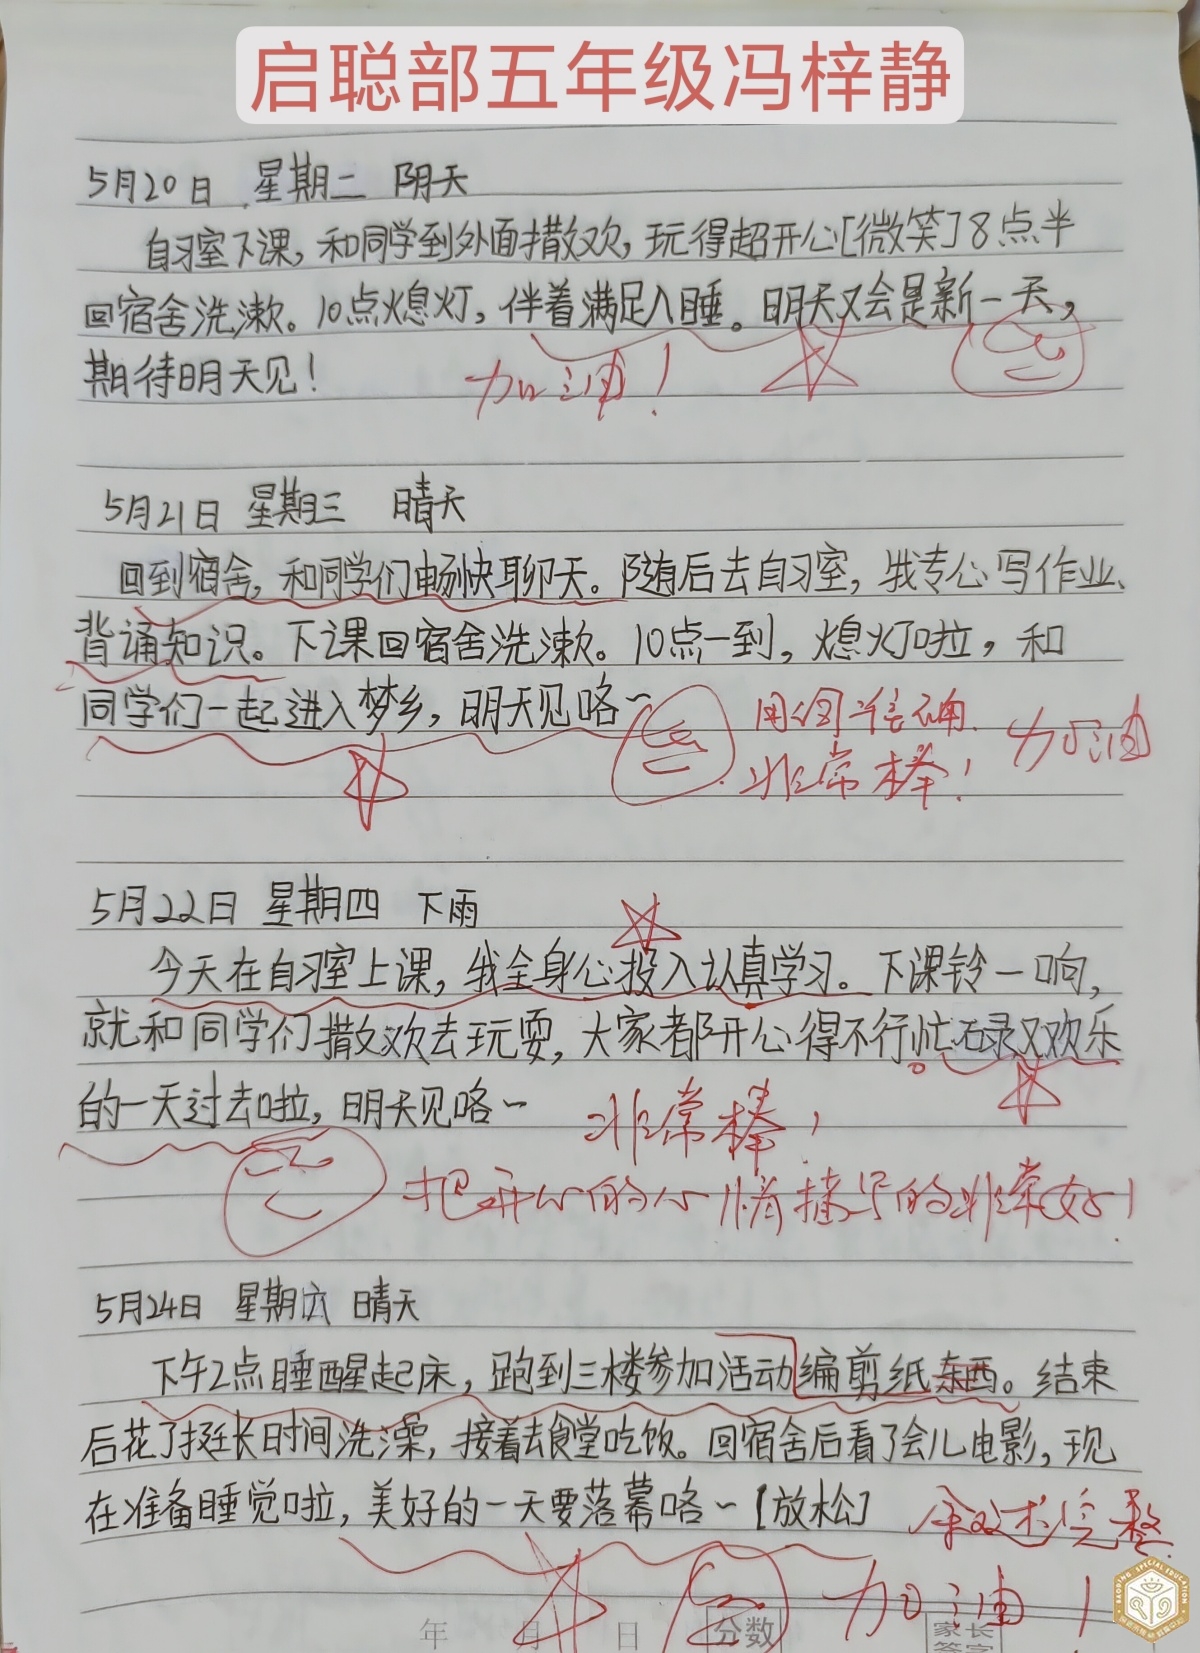 启聪部五年级冯梓静
5月20日 星期二 阴天
自习室下课，和同学到外面撒欢，玩得超开心[微笑]8点半
回宿舍洗漱。10点熄灯，伴着满足入睡。明天又会是新一天，
期待明天见！
加油！
5月21日 星期三 晴天
回到宿舍，和同学们畅快聊天。随后去自习室，我专心写作业、
背诵知识。下课回宿舍洗漱。10点一到，熄灯啦，和
同学们一起进入梦乡，明天见咯~
用词准确
非常棒！
加油
5月22日 星期四 下雨
今天在自习室上课，我全身心投入认真学习。下课铃一响，
就和同学们撒欢去玩耍，大家都开心得不行忙碌又欢乐
的一天过去啦，明天见咯~
非常棒！
把开心的心情描写的非常好！
5月24日 星期六 晴天
下午2点睡醒起床，跑到三楼参加活动编剪纸东西。结束
后花了挺长时间洗澡，接着去食堂吃饭。回宿舍后看了会儿电影，现
在准备睡觉啦，美好的一天要落幕咯~[放松]
叙述完整
加油！
年 月 日 分数 家长
签字
BAODING SPECIAL EDUCATION